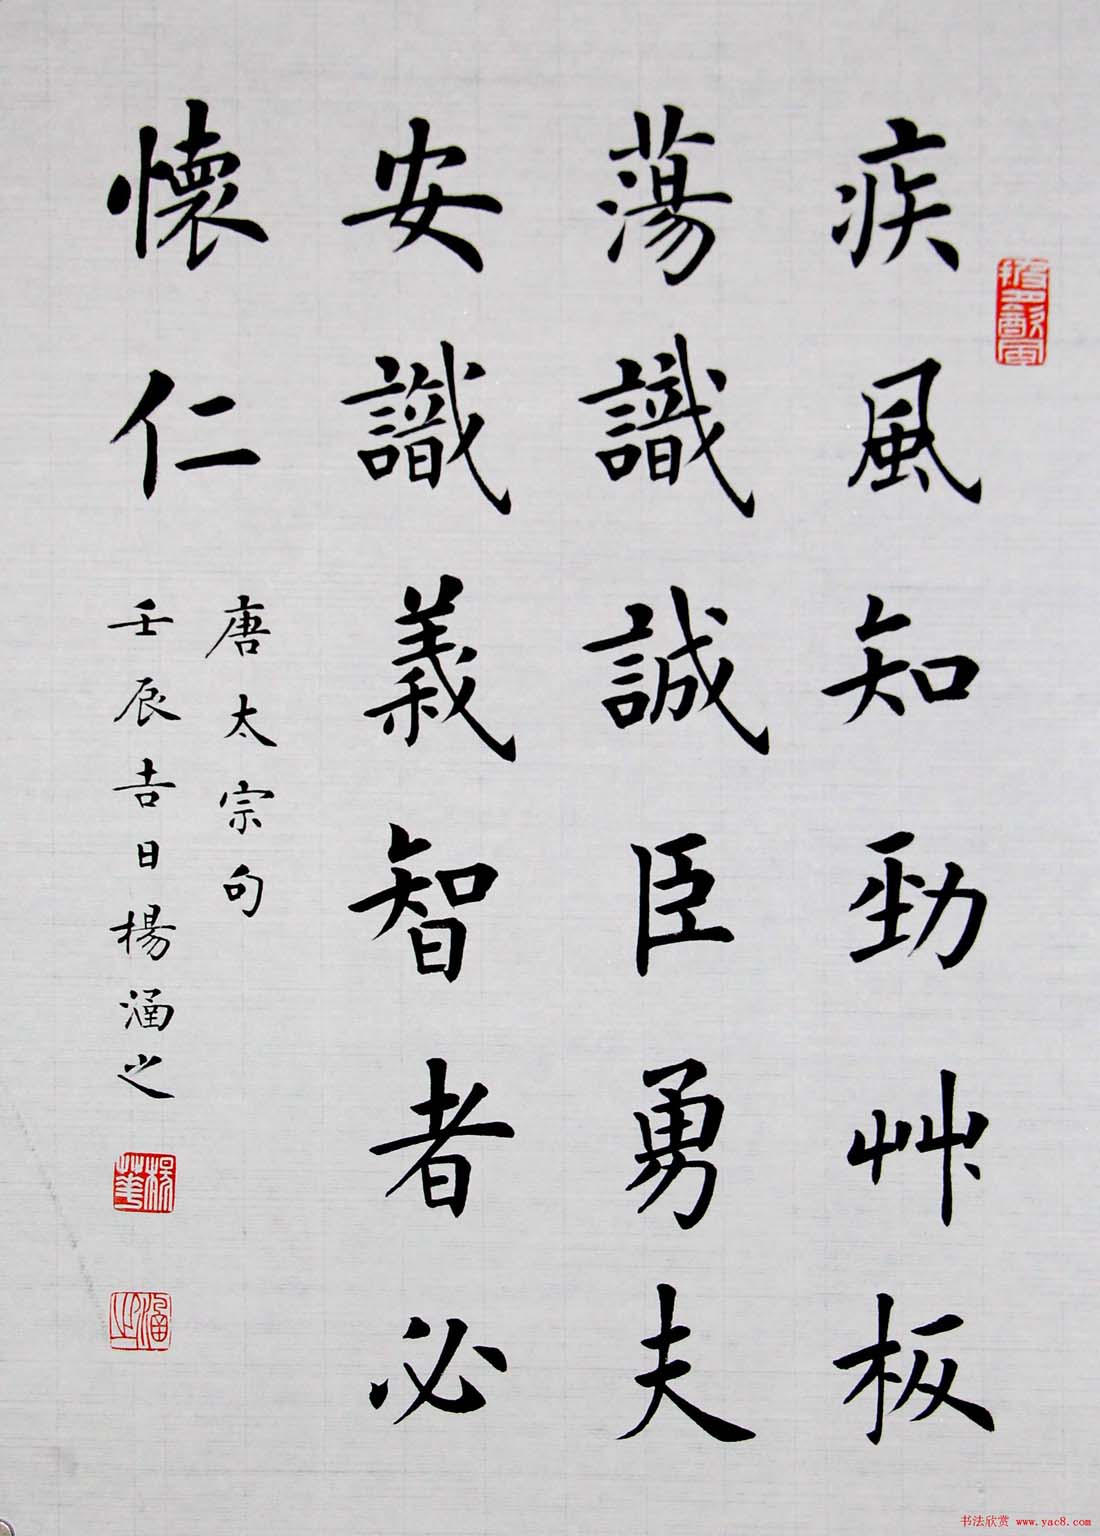 疾風知勁艸板
蕩識誠臣勇夫
安識義智者必
懷仁
唐太宗句
壬辰吉日楊涵之
楊華
涵之
书法欣赏 www.yac8.com